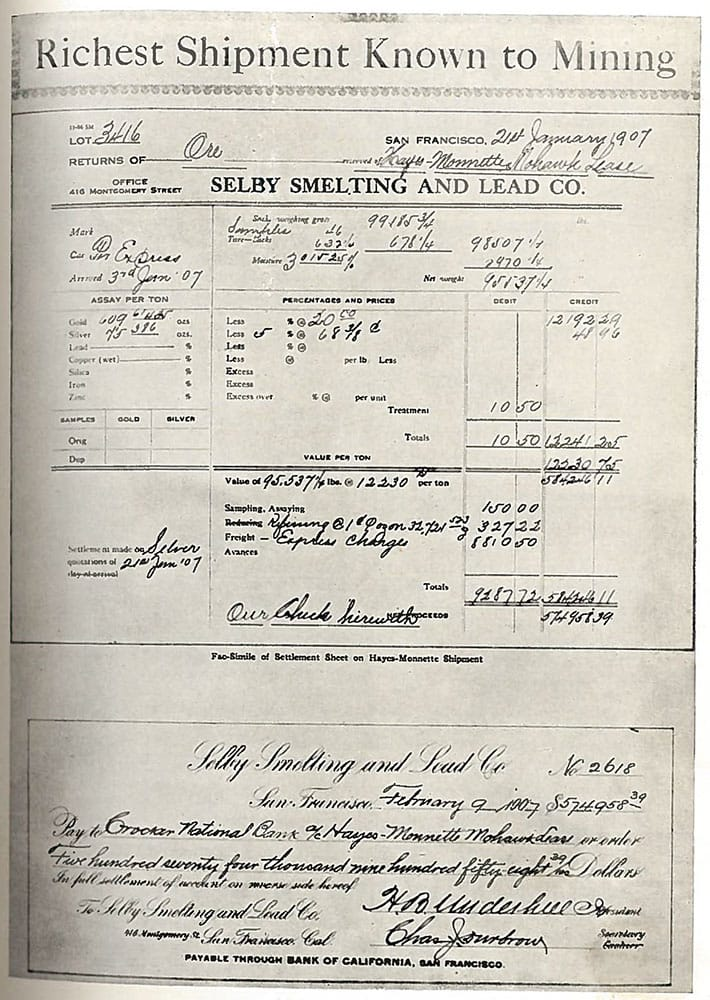 Richest Shipment Known to Mining
LOT 3416
SAN FRANCISCO, 21st January 1907
RETURNS OF Ore received of Hayes-Monnette Mohawk Lease
OFFICE
416 MONTGOMERY STREET
SELBY SMELTING AND LEAD CO.
Mark
Car Per Express
Arrived 3rd Jan '07
Samples
Tare—Sacks
Moisture
99185 3/4
46
632 1/2
678 1/4
98507 1/2
2970 1/4
Net weight 95537 1/4
ASSAY PER TON
PERCENTAGES AND PRICES
DEBIT
CREDIT
Gold 609 ozs
Less % @ 20 00
12192 29
Silver 75 ozs.
Less 5 % @ 68 3/8 ¢
48 96
Lead %
Less % @
Copper (wet) %
Less @ per lb Less
Silica %
Excess
Iron %
Excess
Zinc %
Excess over % @ per unit
Treatment
10 50
SAMPLES GOLD SILVER
Orig
Totals
10 50 12241 25
Dup
VALUE PER TON
12230 75
Value of 95.537 1/4 lbs. @ 12230 75 per ton
584246 11
Sampling, Assaying
150 00
Reducing Refining @ 1¢
327 22
Freight - Express Charges
8810 50
Avances
Settlement made on Silver
quotations of 21st Jan '07
day of arrival
Totals
9287 72 584246 11
Our Check herewith NET PROCEEDS
574958 39
Fac-Simile of Settlement Sheet on Hayes-Monnette Shipment
Selby Smelting and Lead Co No 2618
San Francisco, February 9 1907 $574958 39
Pay to Crocker National Bank a/c Hayes-Monnette Mohawk Lease or order
Five hundred seventy four thousand nine hundred fifty eight 39/100 Dollars
In full settlement of account on reverse side hereof
To Selby Smelting and Lead Co.
H B Underhill President
416 Montgomery St. San Francisco, Cal.
Secretary
Cashier
PAYABLE THROUGH BANK OF CALIFORNIA, SAN FRANCISCO.